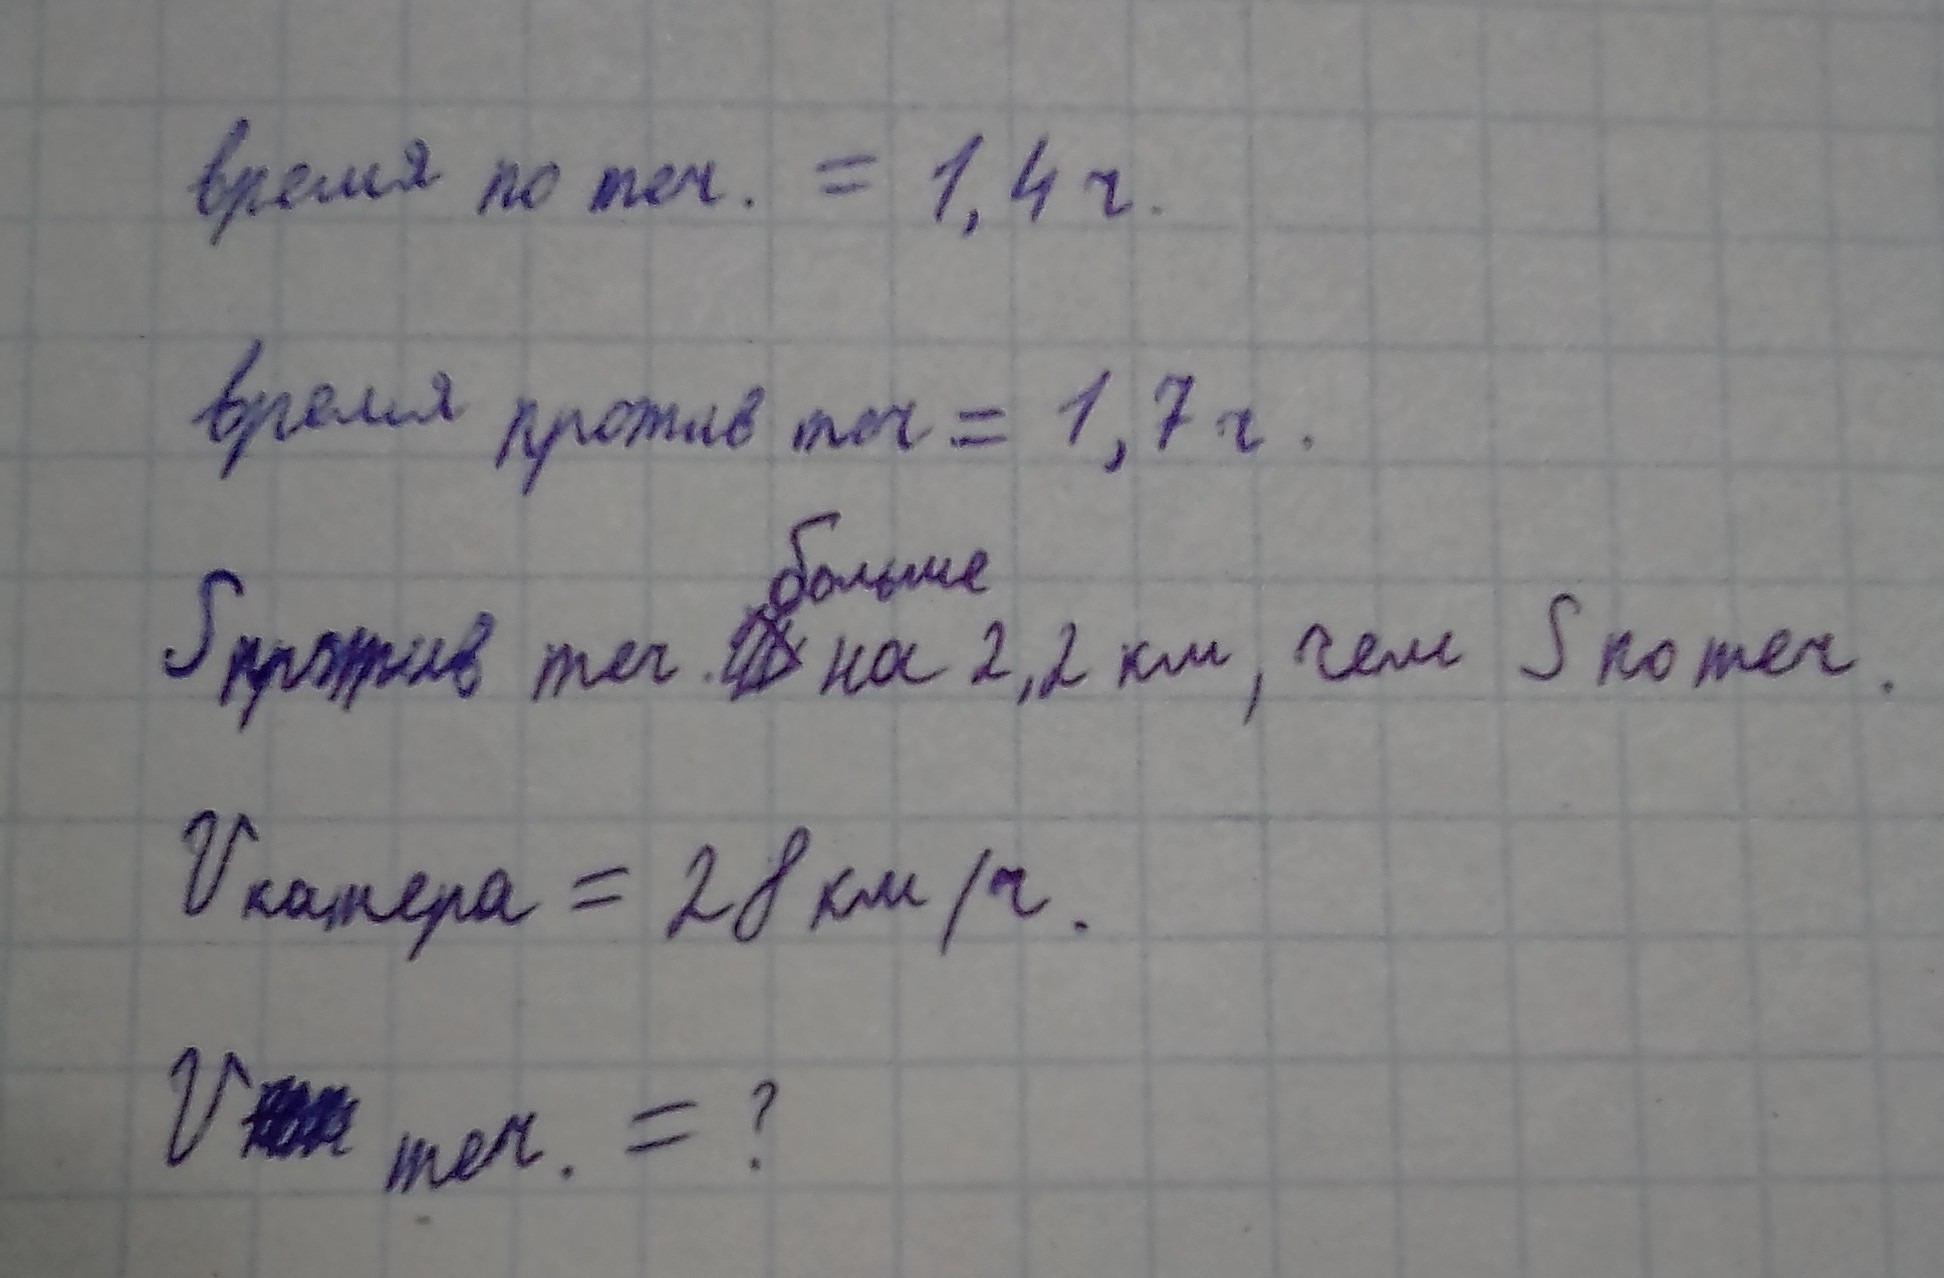 время по теч. = 1,4 ч.
время против теч = 1,7 ч.
больше
S против теч. на 2,2 км, чем S по теч.
V катера = 28 км/ч.
V теч. = ?